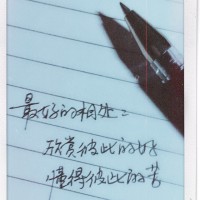 最好的相处：
欣赏彼此的好
懂得彼此的苦